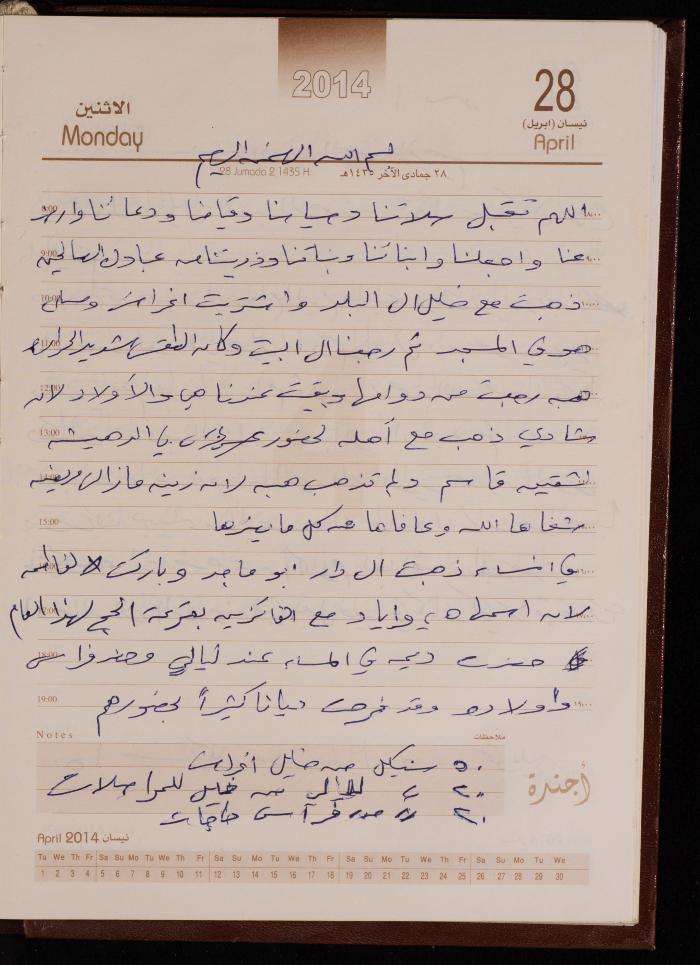 2014
الاثنين
Monday
28
نيسان (ابريل)
April
بسم الله الرحمن الرحيم
28 Jumada 2 1435 H
٢٨ جمادى الآخر ١٤٣٥هـ
اللهم تقبل صلاتنا وصيامنا وقيامنا ودعائنا وارض
عنا واجعلنا وابنائنا وبناتنا وذريتنا من عبادك الصالحين
ذهبت مع خليل الى البلد واشتريت اغراض
المسجد ثم رجعنا الى البيت وكان الطقس شديد الحرارة
هبه رجعت من دوامها وبقيت عندنا هي والأولاد لان
شادي ذهب مع أهله لحضور بالدهيشة
لشقيق قاسم ولم تذهب هبه لان زينه مازال مريضه
شفاها الله وعافاها من كل ما يضرها
في المساء ذهبت الى دار ابو ماجد وباركت لفاطمه
لان اسمها واياد مع الفائزين بقرعة الحج لهذا العام
حضرت ديمه في المساء عند ليالي وحضر فراس
وأولاده وقد فرحت ديانا كثيراً بحضورهم
Notes
ملاحظات
٥٠ شيكل من خليل أغراض
٢٠ " من خليل للمواصلات
٢٠ " فراس حاجات
أجندة
April 2014 نيسان
Tu We Th Fr Sa Su Mo Tu We Th Fr Sa Su Mo Tu We Th Fr Sa Su Mo Tu We Th Fr Sa Su Mo Tu We
1 2 3 4 5 6 7 8 9 10 11 12 13 14 15 16 17 18 19 20 21 22 23 24 25 26 27 28 29 30